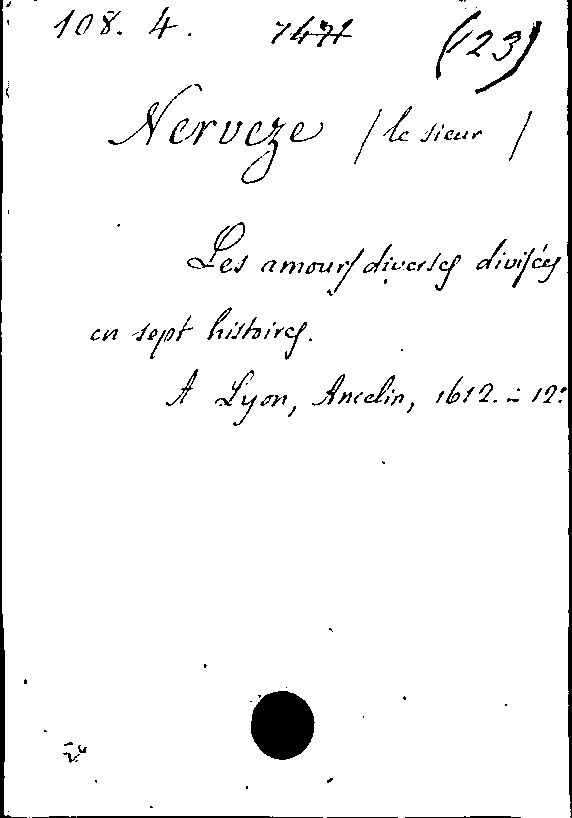 108. 4. 7471 (23)
Nerveze (le sieur)
Les amours diverses divisées
en sept histoires.
A Lyon, Ancelin, 1612. - 12: